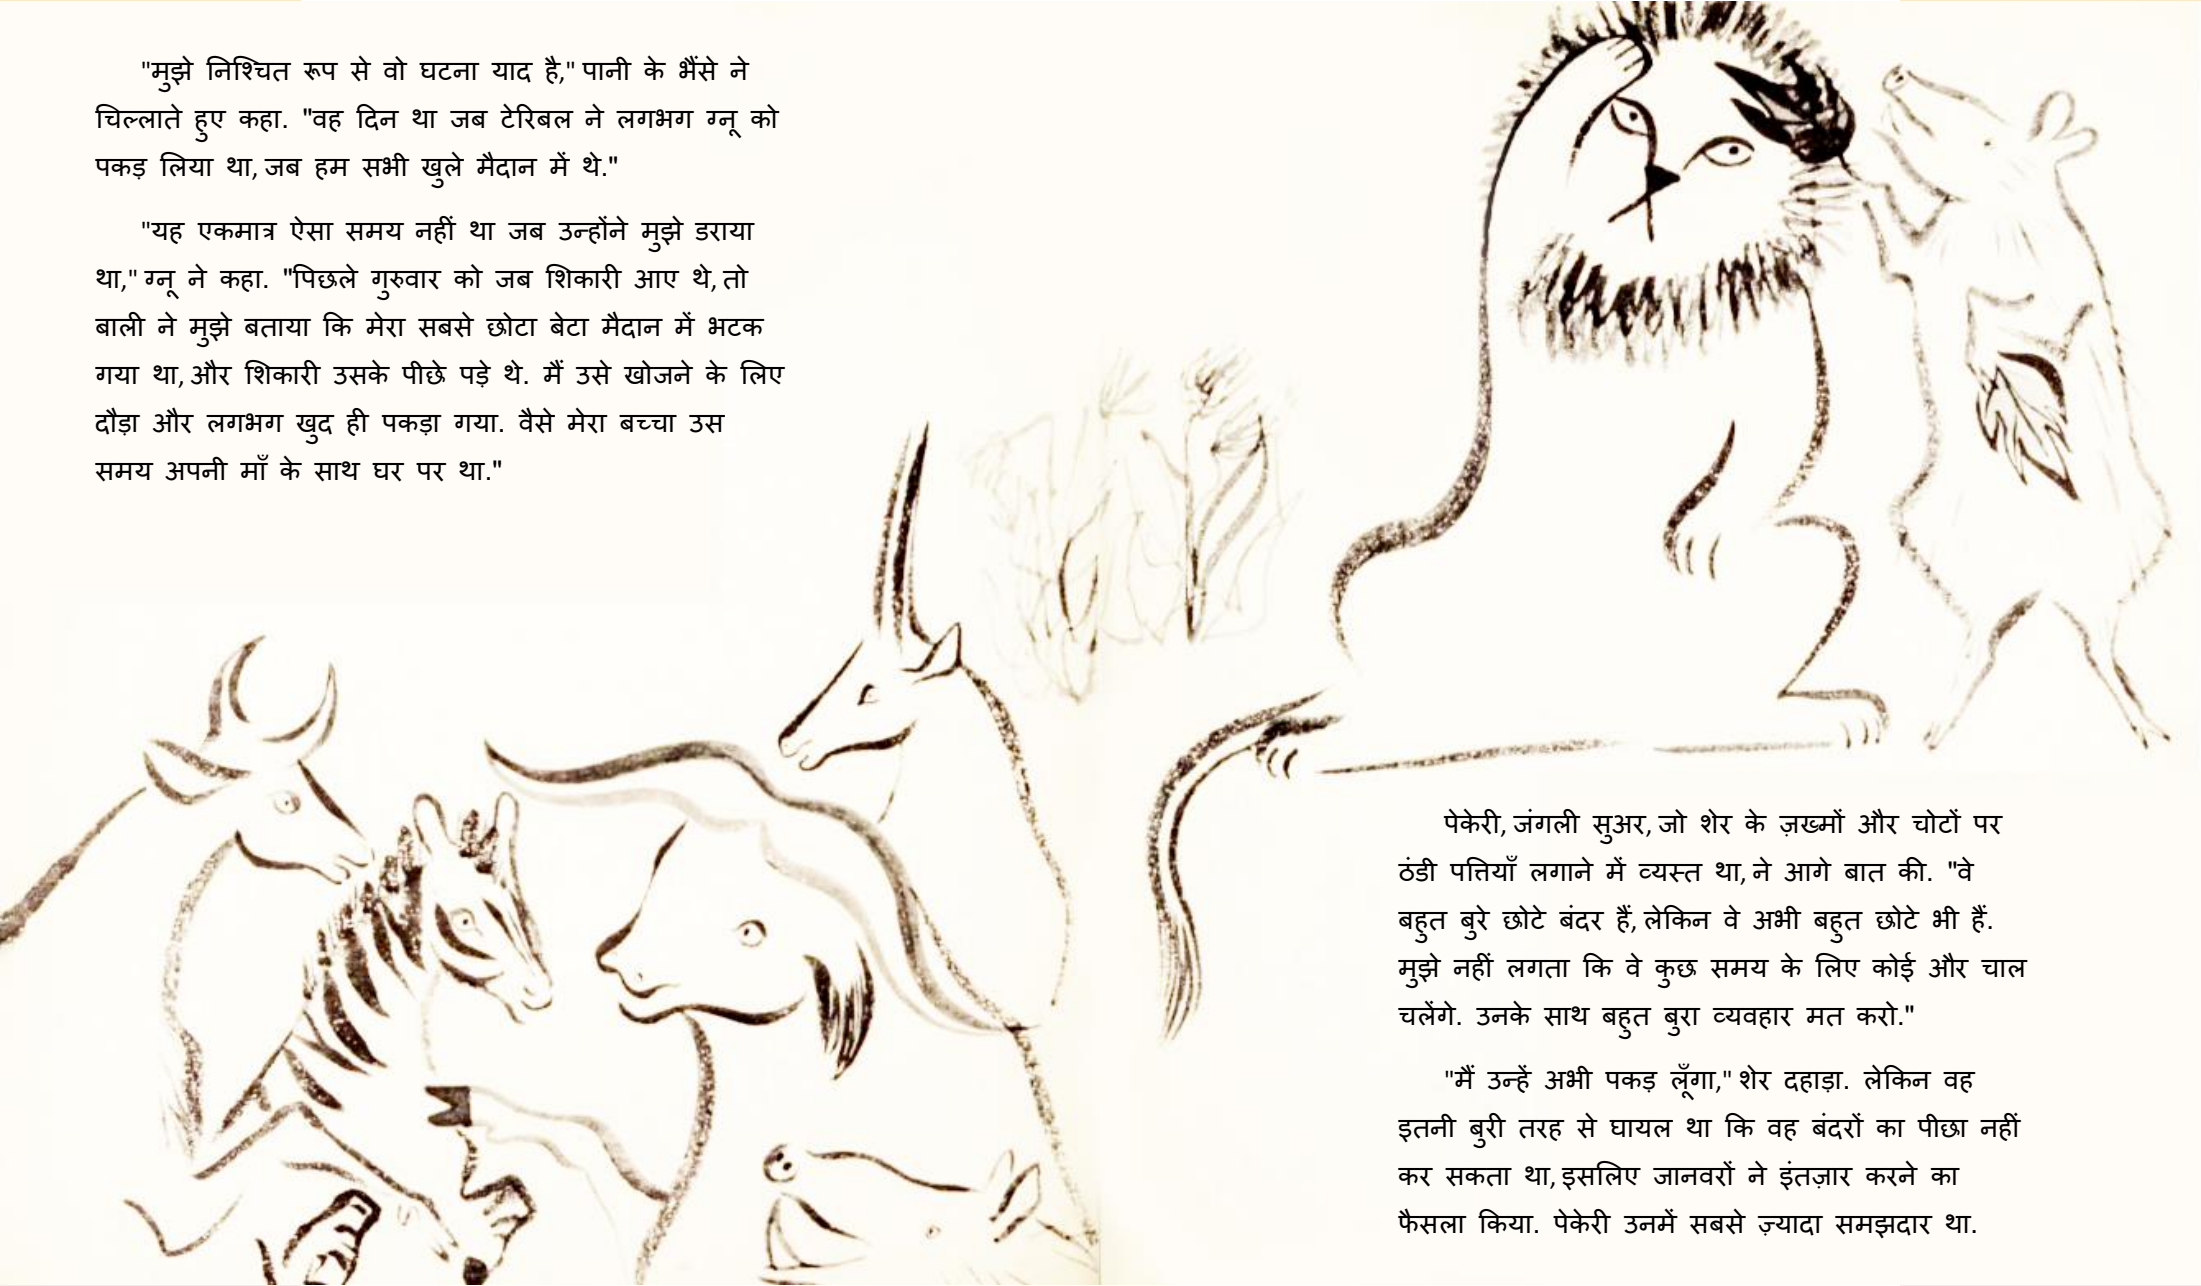 "मुझे निश्चित रूप से वो घटना याद है," पानी के भैंसे ने
चिल्लाते हुए कहा. "वह दिन था जब टेरिबल ने लगभग ग्नू को
पकड़ लिया था, जब हम सभी खुले मैदान में थे."
"यह एकमात्र ऐसा समय नहीं था जब उन्होंने मुझे डराया
था," ग्नू ने कहा. "पिछले गुरुवार को जब शिकारी आए थे, तो
बाली ने मुझे बताया कि मेरा सबसे छोटा बेटा मैदान में भटक
गया था, और शिकारी उसके पीछे पड़े थे. मैं उसे खोजने के लिए
दौड़ा और लगभग खुद ही पकड़ा गया. वैसे मेरा बच्चा उस
समय अपनी माँ के साथ घर पर था."
पेकेरी, जंगली सुअर, जो शेर के ज़ख्मों और चोटों पर
ठंडी पत्तियाँ लगाने में व्यस्त था, ने आगे बात की. "वे
बहुत बुरे छोटे बंदर हैं, लेकिन वे अभी बहुत छोटे भी हैं.
मुझे नहीं लगता कि वे कुछ समय के लिए कोई और चाल
चलेंगे. उनके साथ बहुत बुरा व्यवहार मत करो."
"मैं उन्हें अभी पकड़ लूँगा," शेर दहाड़ा. लेकिन वह
इतनी बुरी तरह से घायल था कि वह बंदरों का पीछा नहीं
कर सकता था, इसलिए जानवरों ने इंतज़ार करने का
फैसला किया. पेकेरी उनमें सबसे ज़्यादा समझदार था.